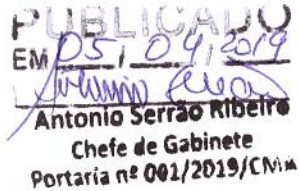 PUBLICADO
EM 05 / 04 / 2019
Antonio Serrão Ribeiro
Chefe de Gabinete
Portaria nº 001/2019/CMM